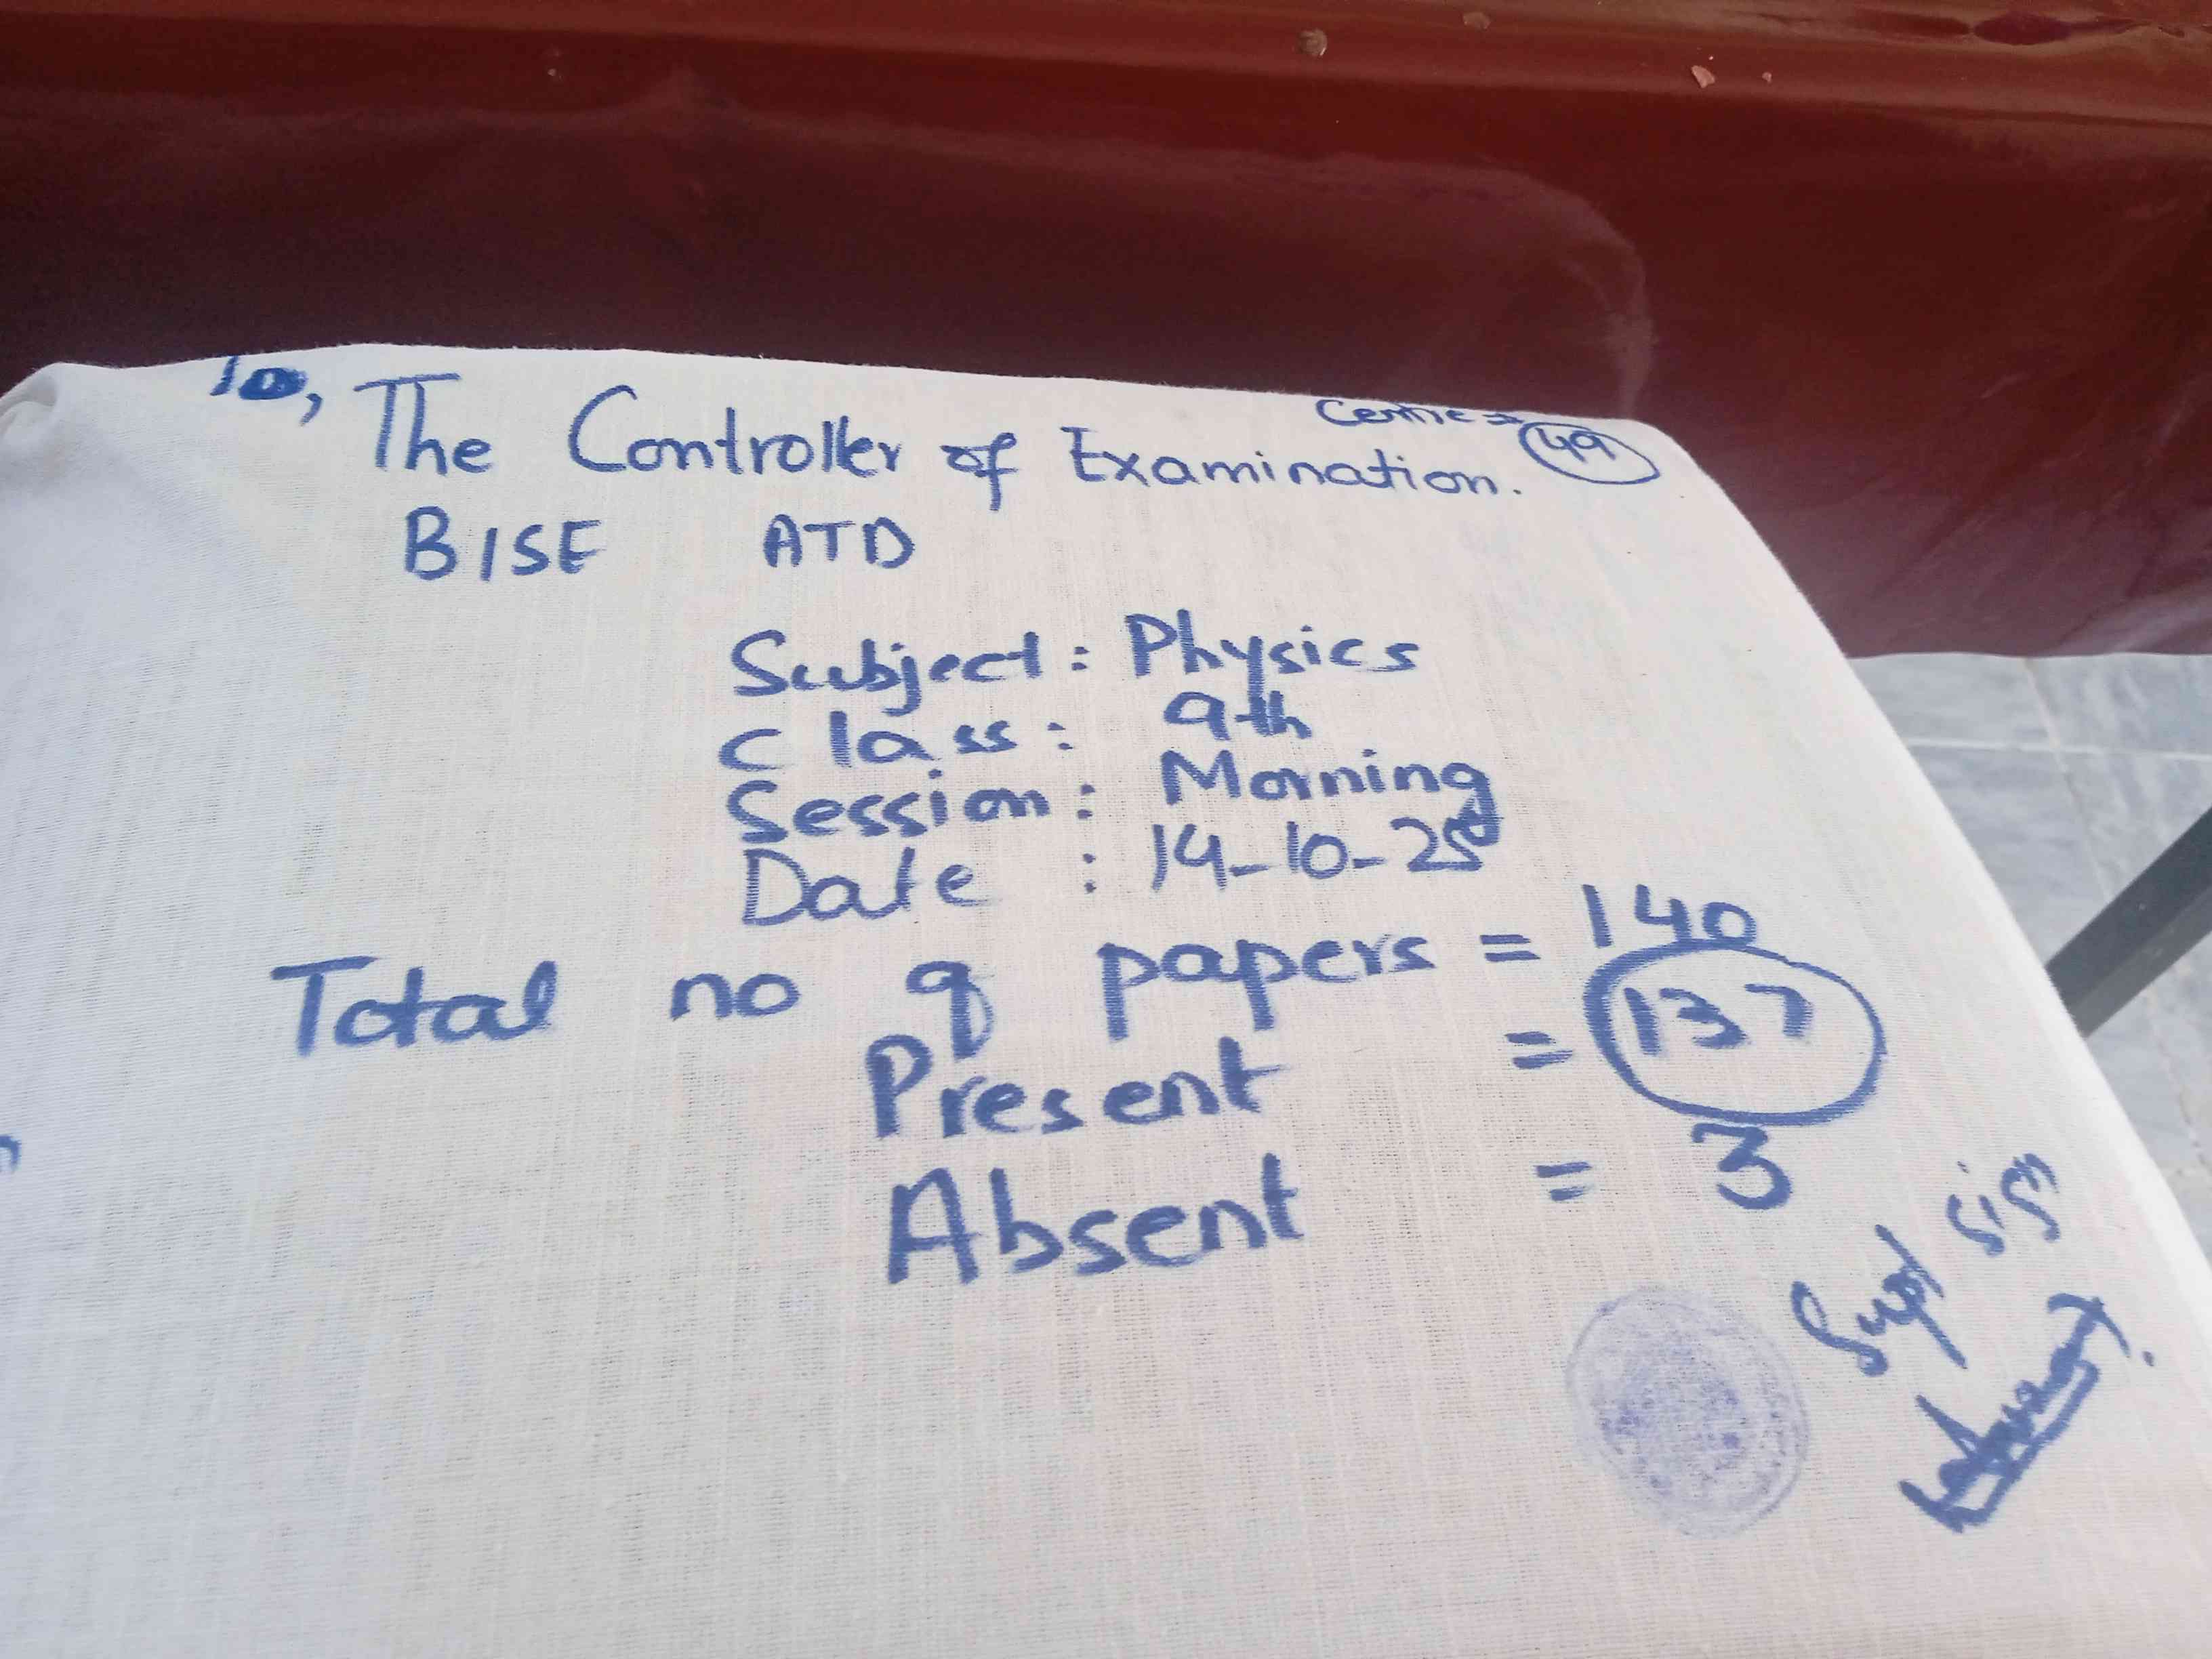 To, The Controller of Examination.
Centre => 49
BISE ATD
Subject: Physics
Class: 9th
Session: Morning
Date : 14-10-25
Total no of papers = 140
Present = 137
Absent = 3
Supt sign